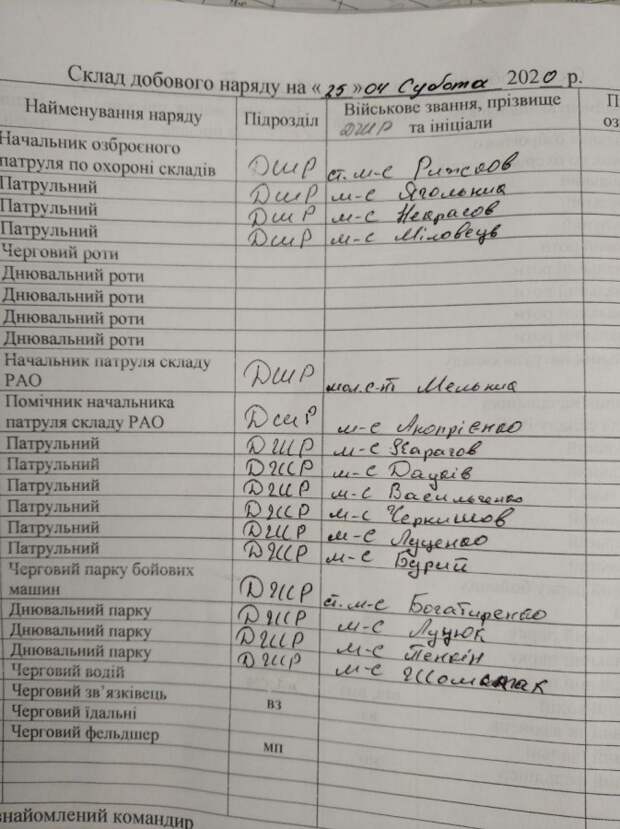 Склад добового наряду на «25» 04 Субота 2020 р.
Найменування наряду Підрозділ Військове звання, прізвище та ініціали
ДШР
Начальник озброєного патруля по охороні складів ДШР ст. м-с
Патрульний ДШР м-с
Патрульний ДШР м-с Некрасов
Патрульний ДШР м-с Міловець
Черговий роти
Днювальний роти
Днювальний роти
Днювальний роти
Днювальний роти
Начальник патруля складу РАО ДШР мол. с-т
Помічник начальника патруля складу РАО ДШР м-с
Патрульний ДШР м-с
Патрульний ДШР м-с Дацків
Патрульний ДШР м-с Васильченко
Патрульний ДШР м-с
Патрульний ДШР м-с Луценко
Патрульний ДШР м-с Бурий
Черговий парку бойових машин ДШР ст. м-с Богатиренко
Днювальний парку ДШР м-с Луцюк
Днювальний парку ДШР м-с Пенкін
Днювальний парку ДШР м-с
Черговий водій
Черговий зв’язківець вз
Черговий їдальні
Черговий фельдшер мп
командир